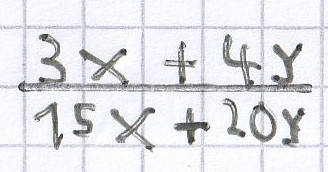 3x + 4y
15x + 20y